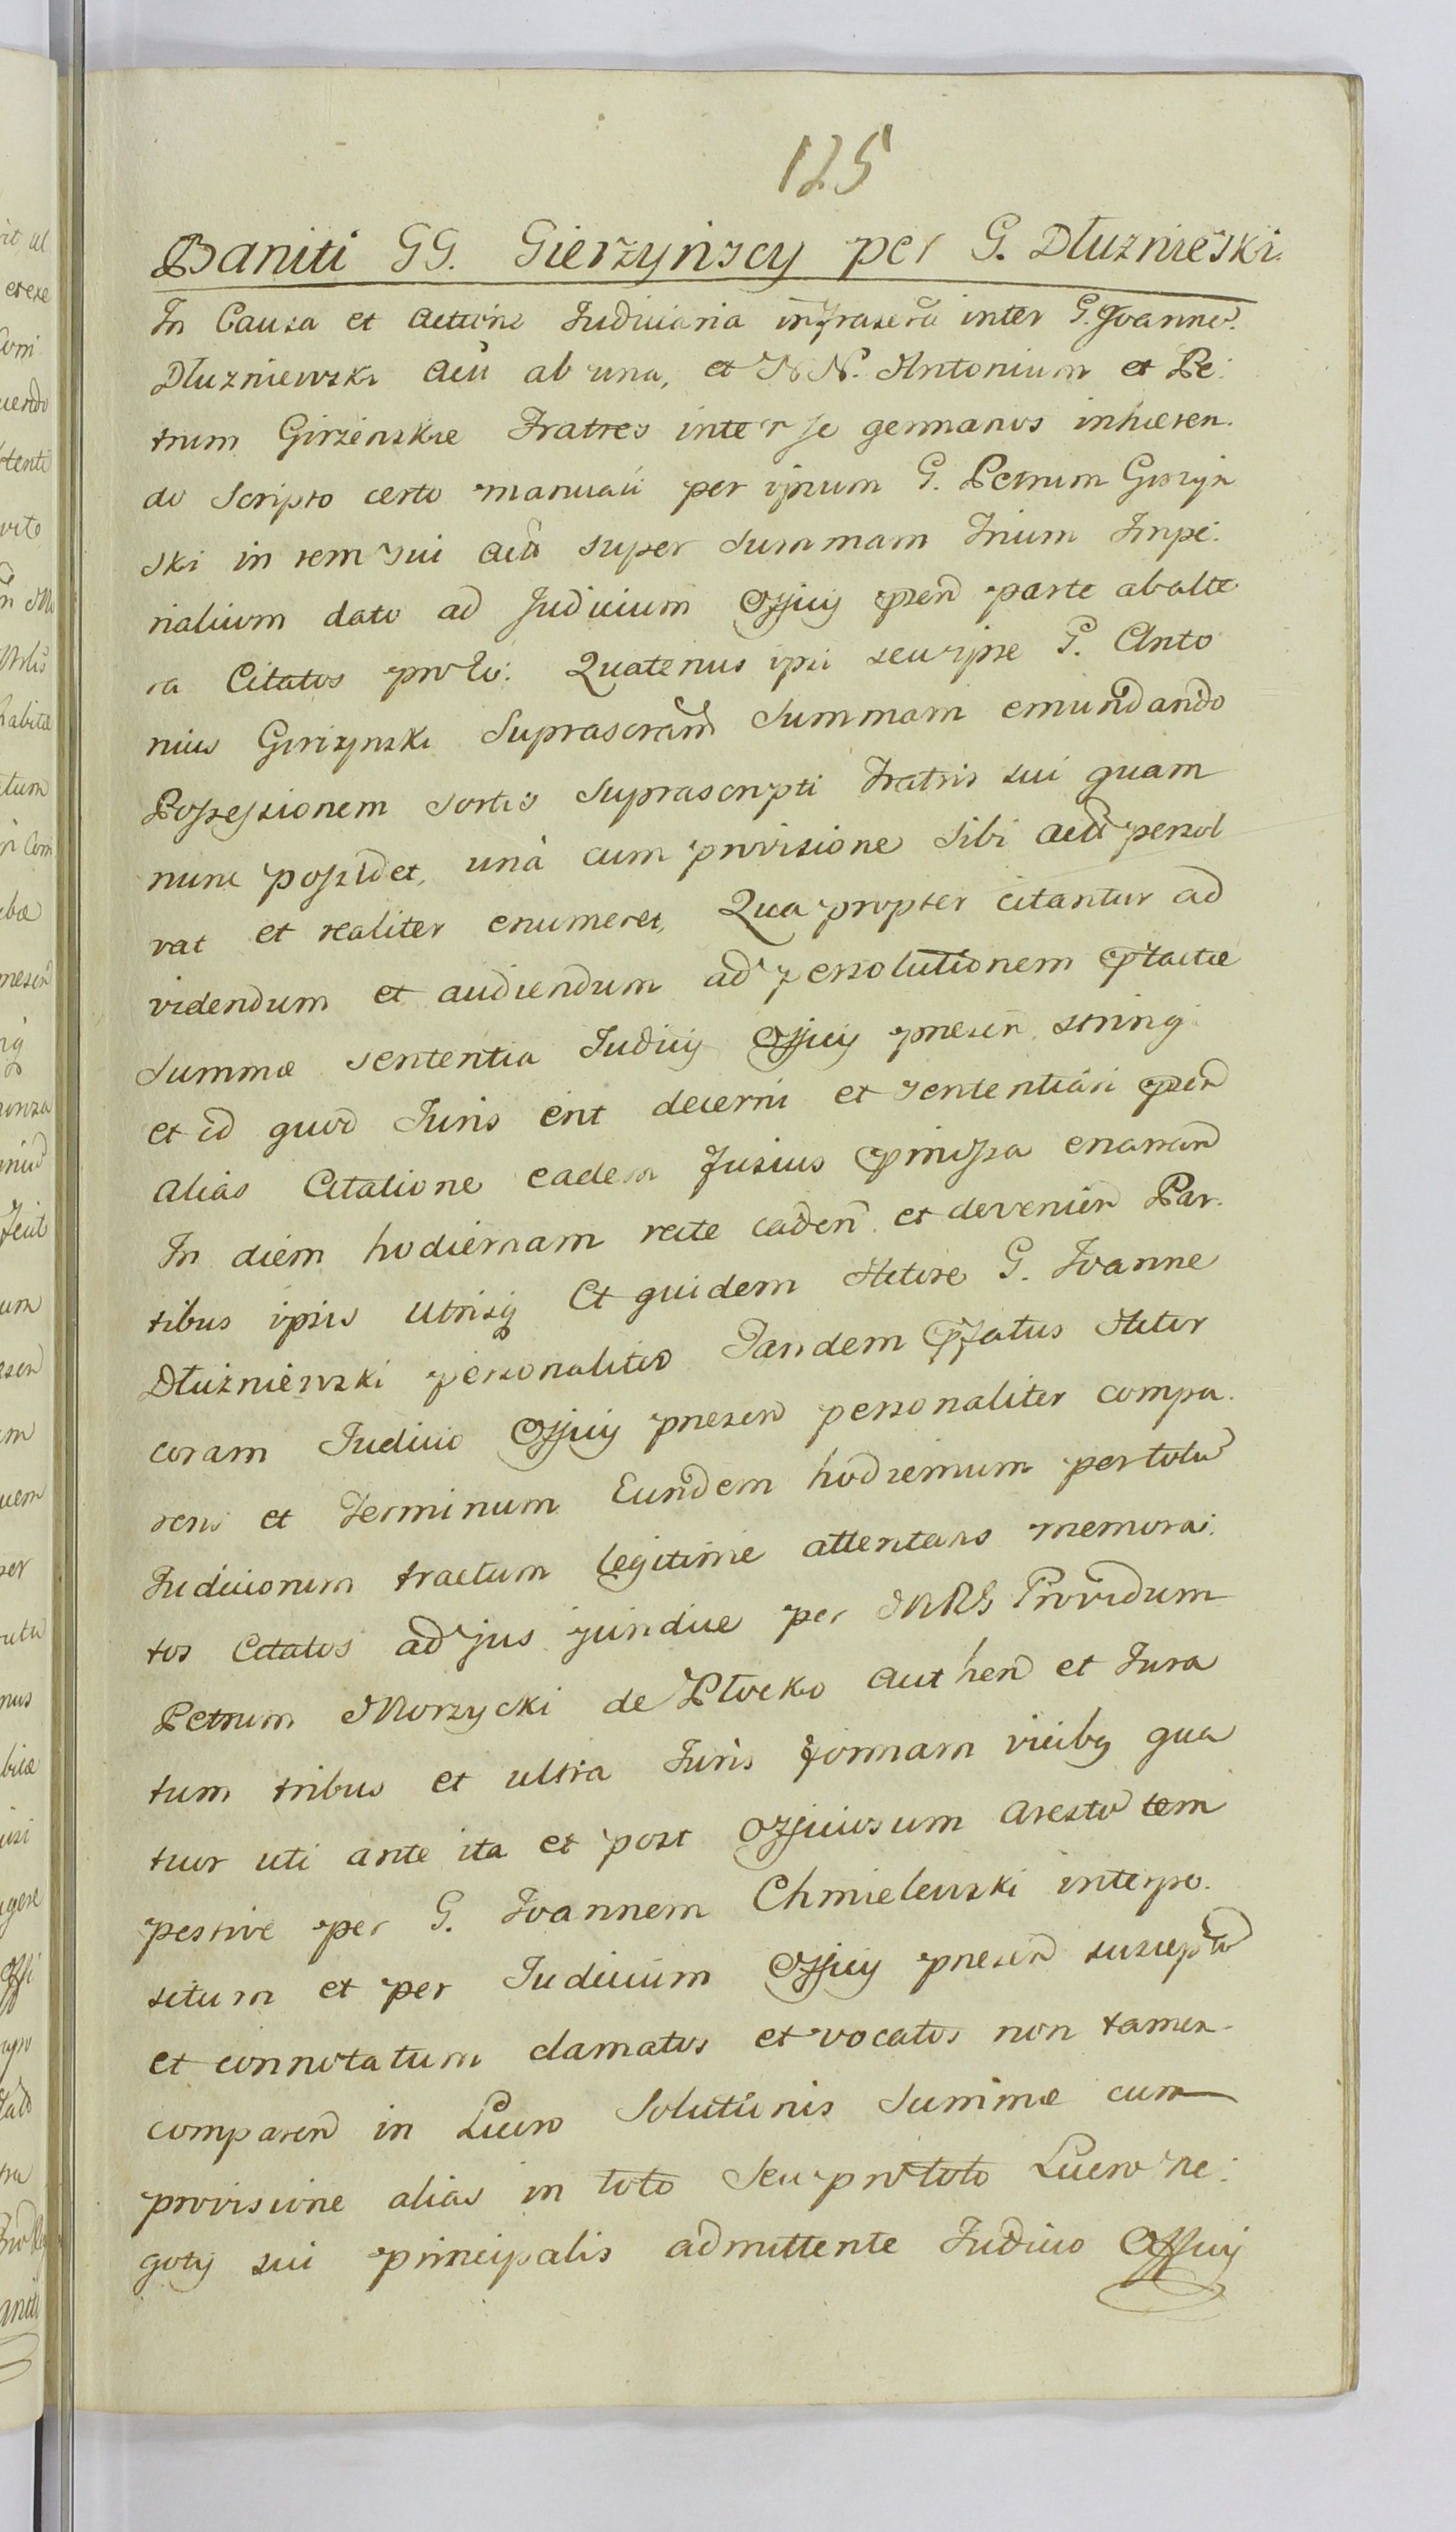 125
Baniti GG. Gierzyńscy per G. Dłuznieski.
In Causa et Actione Judiciaria infrascrã inter G. Joanne.
Dłuzniewski Acũ ab una, et NN. Antonium et Pe:
trum Girzinskie Fratres inter se germanos inhæren.
do Scripto certo manuali per ipsum G. Petrum Girzyn
ski in rem sui Acũ super Summam Trium Impe:
rialium dato ad Judicium Officij pñsen parte ab alte
ra Citatos pro Eo: Quatenus ipsi seu ipse G. Anto
nius Girizynski Suprascram Summam emundando
Possessionem Sortis Suprascripti Fratris sui quam
nunc possidet, unà cum provisione Sibi Acũ persol
vat et realiter enumeret, Qua propter citantur ad
videndum et audiendum ad persolutionem pttactæ
Summæ sententia Judicij Officij præsen string
et id quod Juris erit decerni et sententiari pñsen
alias Citatione eadem fusius pmissa enarrand
In diem hodiernam recte caden et devenien Par.
tibus ipsis Utrisq Et quidem Actore G. Joanne
Dłużniewski personaliter Tandem pfatus Actor
coram Judicio Officij præsen personaliter compa.
rens et Terminum Eundem hodiernum per totu
Judiciorum tractum legitime attentans memora:
tos Citatos ad jus juridice per MRG Providum
Petrum Morzycki de Płocko authen et Jura
tum tribus et ultra Juris formam vicibq qua
tuor uti ante ita et post Officiosum aresto tem
pestive per G. Joannem Chmielewski interpo.
situm et per Judicium Officij præsen susceptu
et connotatum clamatos et vocatos non tamen
comparen in Lucro Solutionis Summæ cum
provisione alias in toto seu pro toto Lucro ne:
gotij sui principalis admittente Judicio Officij